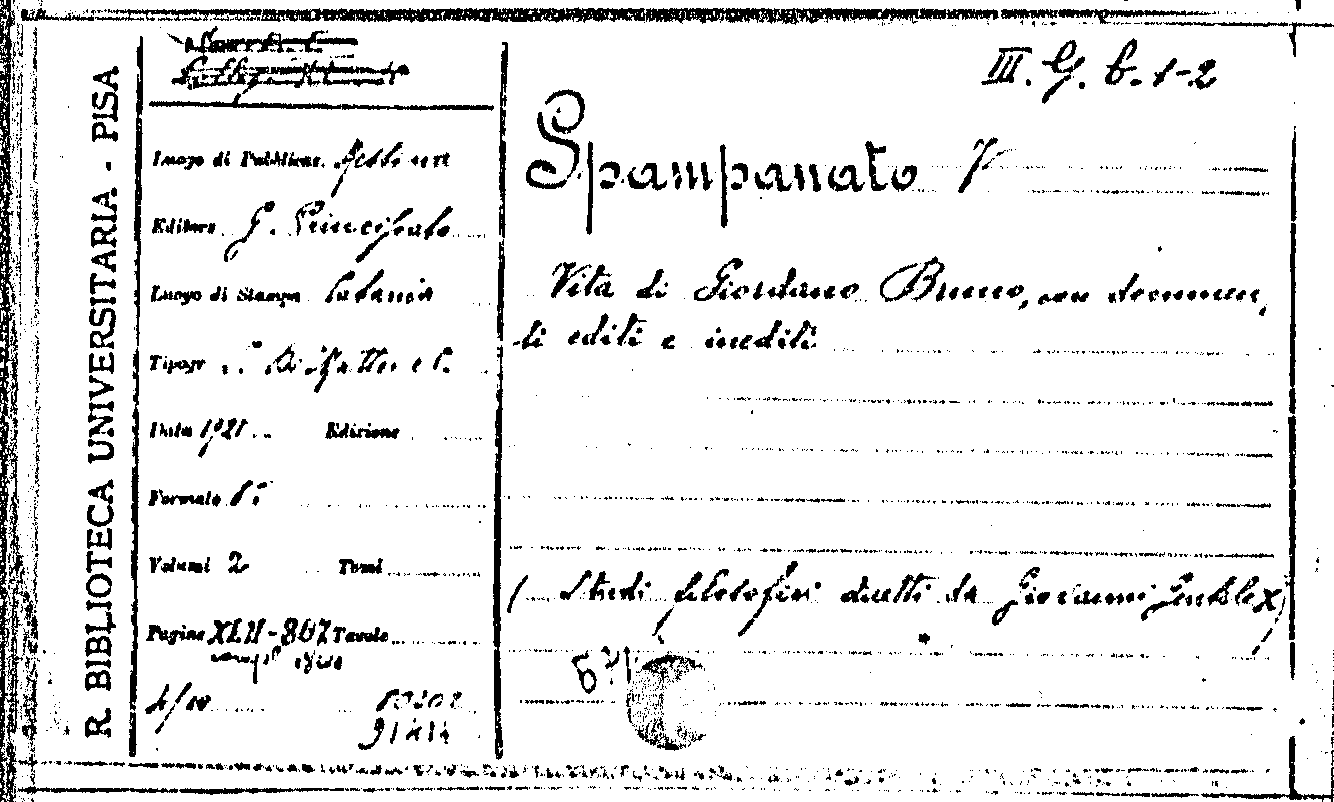 R. BIBLIOTECA UNIVERSITARIA - PISA
III. G. b. 1-2
Spampanato V
Luogo di Pubblicaz. Messina
Editore G. Principato
Luogo di Stampa Catania
Tipogr
Data 1921 Edizione
Formato 8°
Volumi 2 Tomi
Pagine XLII-807 Tavole
4/10
Vita di Giordano Bruno, con documen,
ti editi e inediti
( Studi filosofici diretti da Giovanni Gentile X)